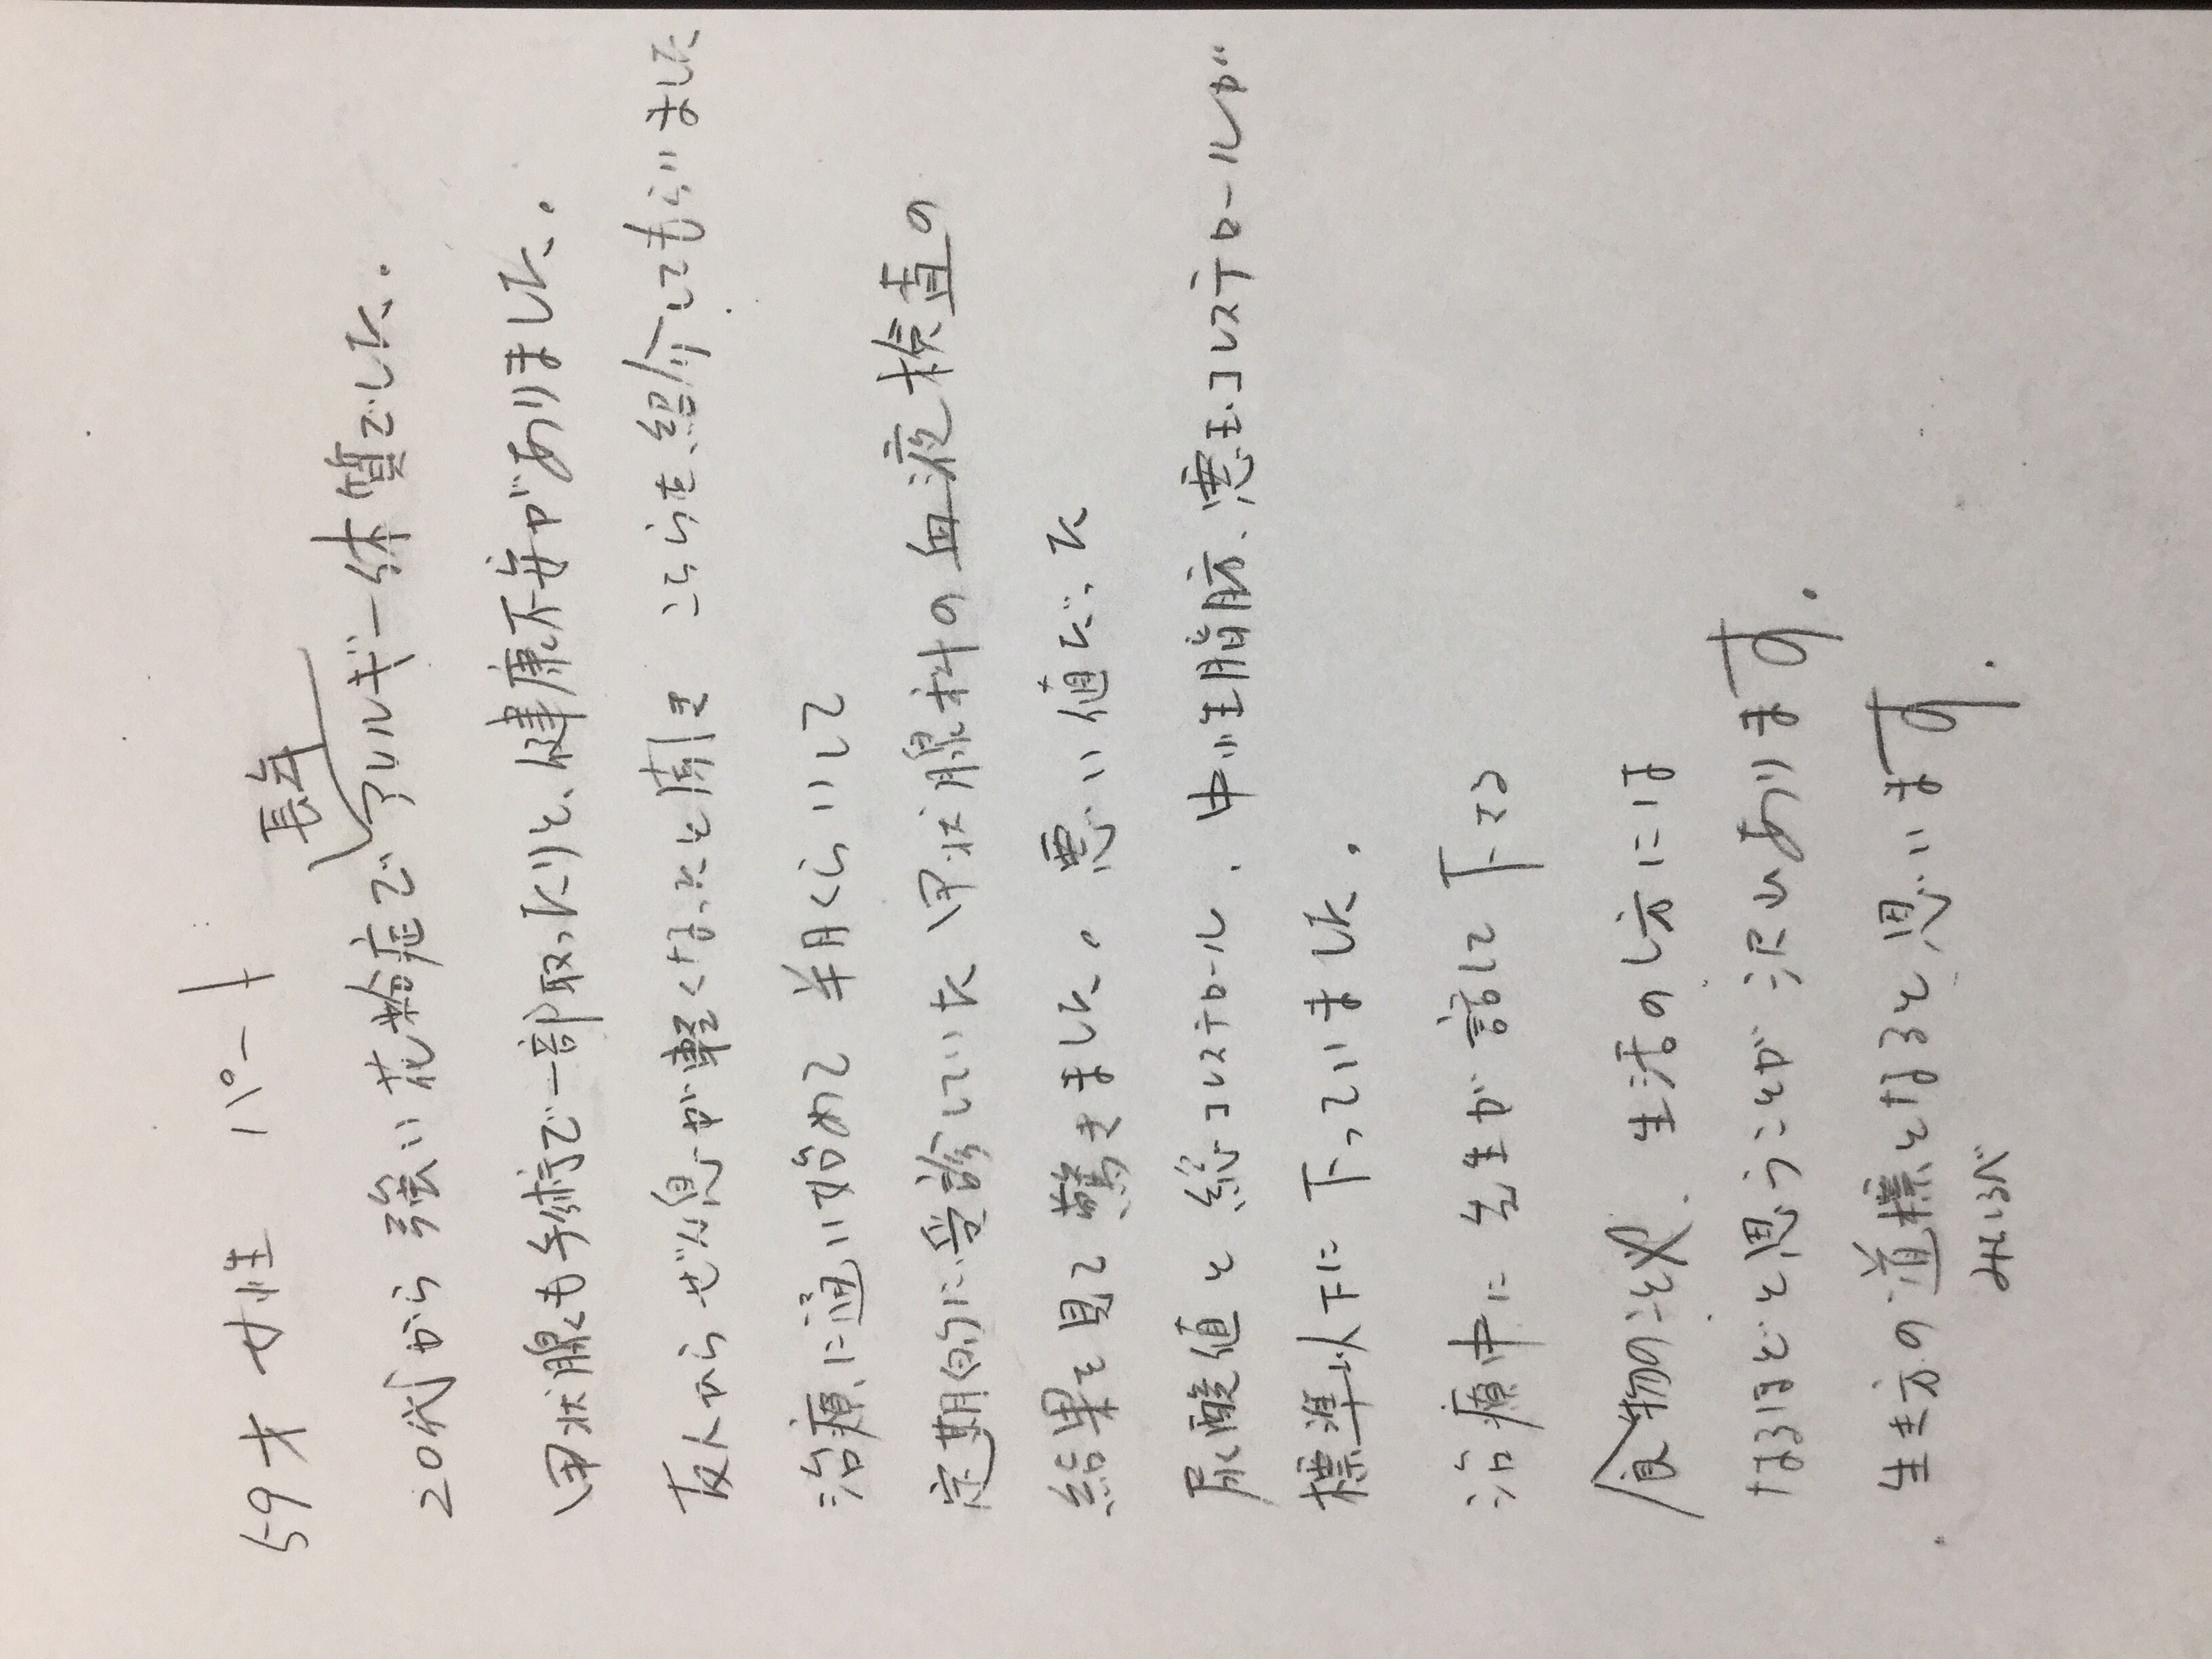 59才 女性 パート
長年
20代から 強い 花粉症で アレルギー体質でした.
甲状腺も手術で一部取ったりと、健康不安がありました.
友人から ぜん息が軽くなったと聞き こちらを、紹介してもらいました
治療に通い始めて 半月くらいして
定期的に受診していた 甲状腺科の血液検査の
結果を見て 驚きました。悪い値だった
尿酸値と 総コレステロール、中性脂肪、悪玉コレステロールが
標準以下に 下っていました.
治療中に 先生が 話して 下さる
食物の話や、生活のし方には
なるほどと思うことが 沢山あります.
生き方の道標となると思います.
みちしるべ